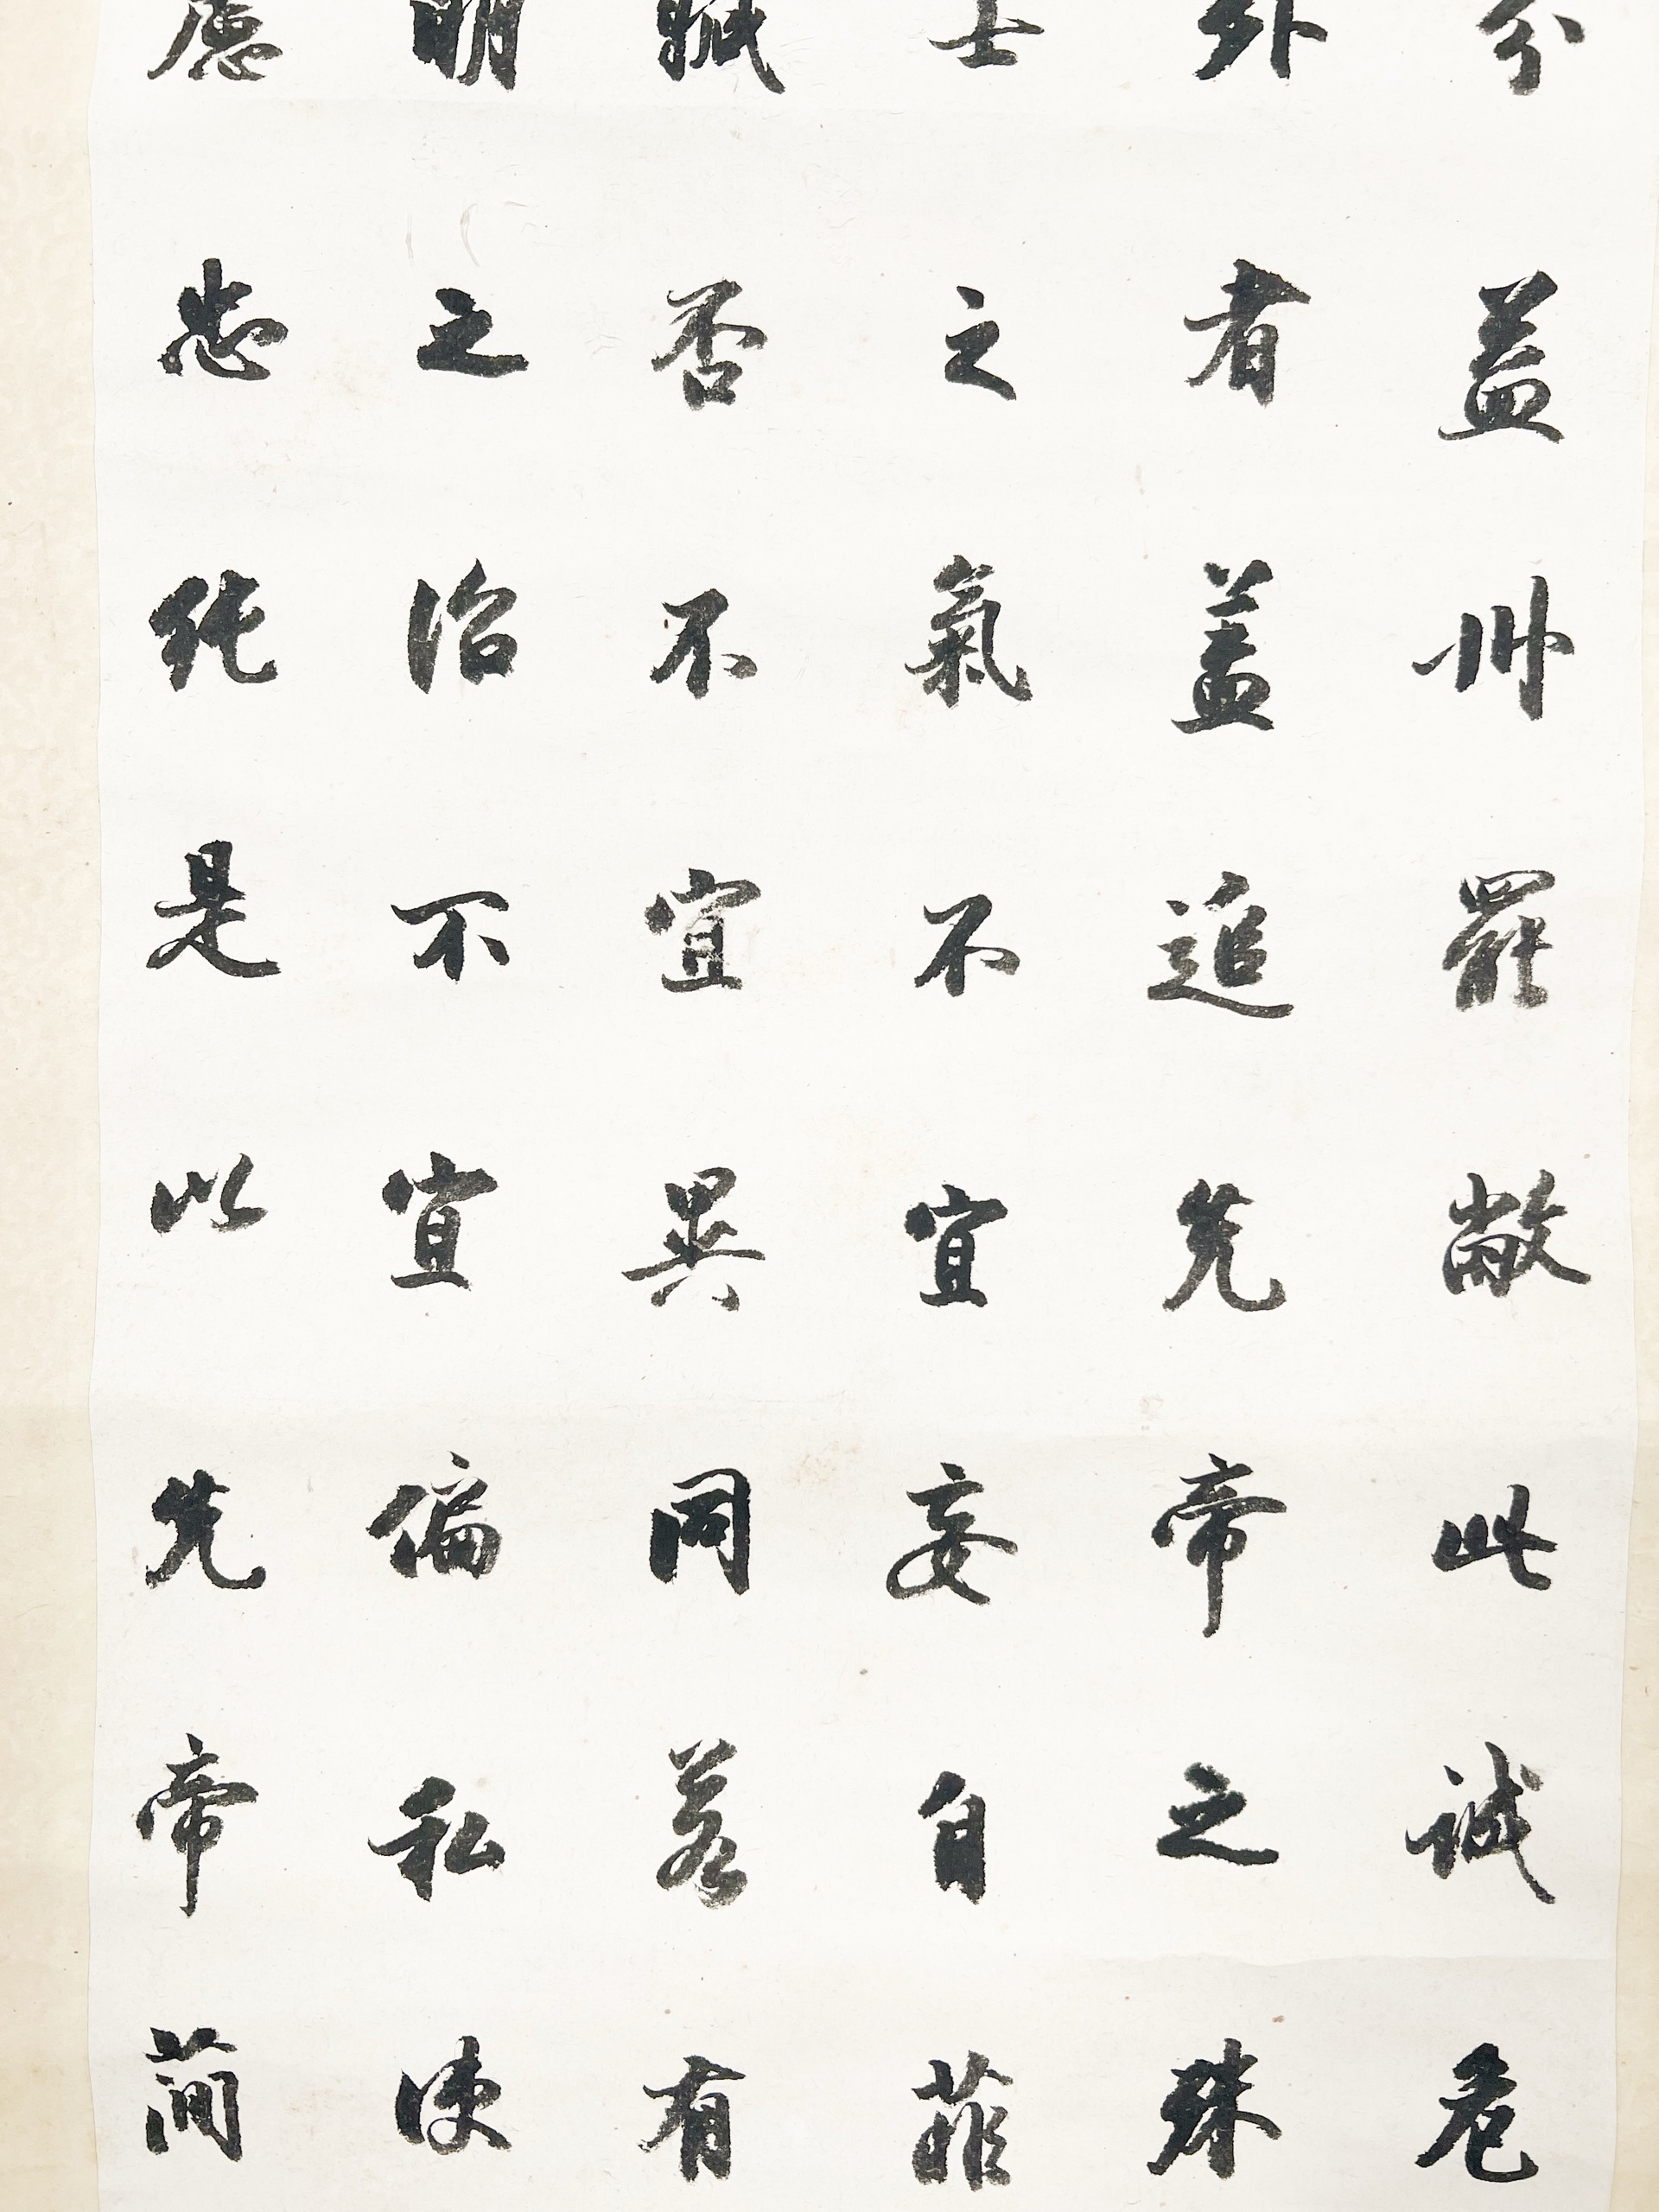 分益州罷敝此誠危
外者盖追先帝之殊
士之氣不宜妄自菲
臧否不宜異同若有
明之治不宜偏私使
慮忠純是以先帝簡